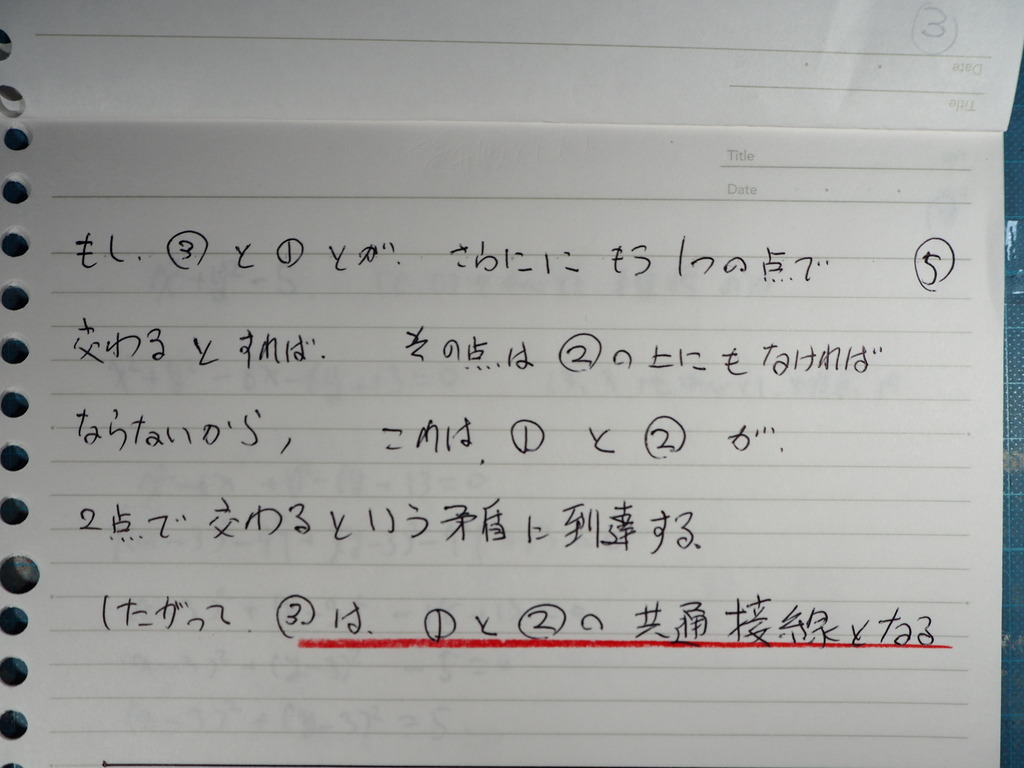 ③
Date
Title
Title
Date
もし、③と①とが、さらにに もう1つの点で ⑤
交わるとすれば、 その点は②の上にもなければ
ならないから, これは、① と ② が、
2点で交わるという矛盾に到達する、
したがって、③は、①と②の共通接線となる